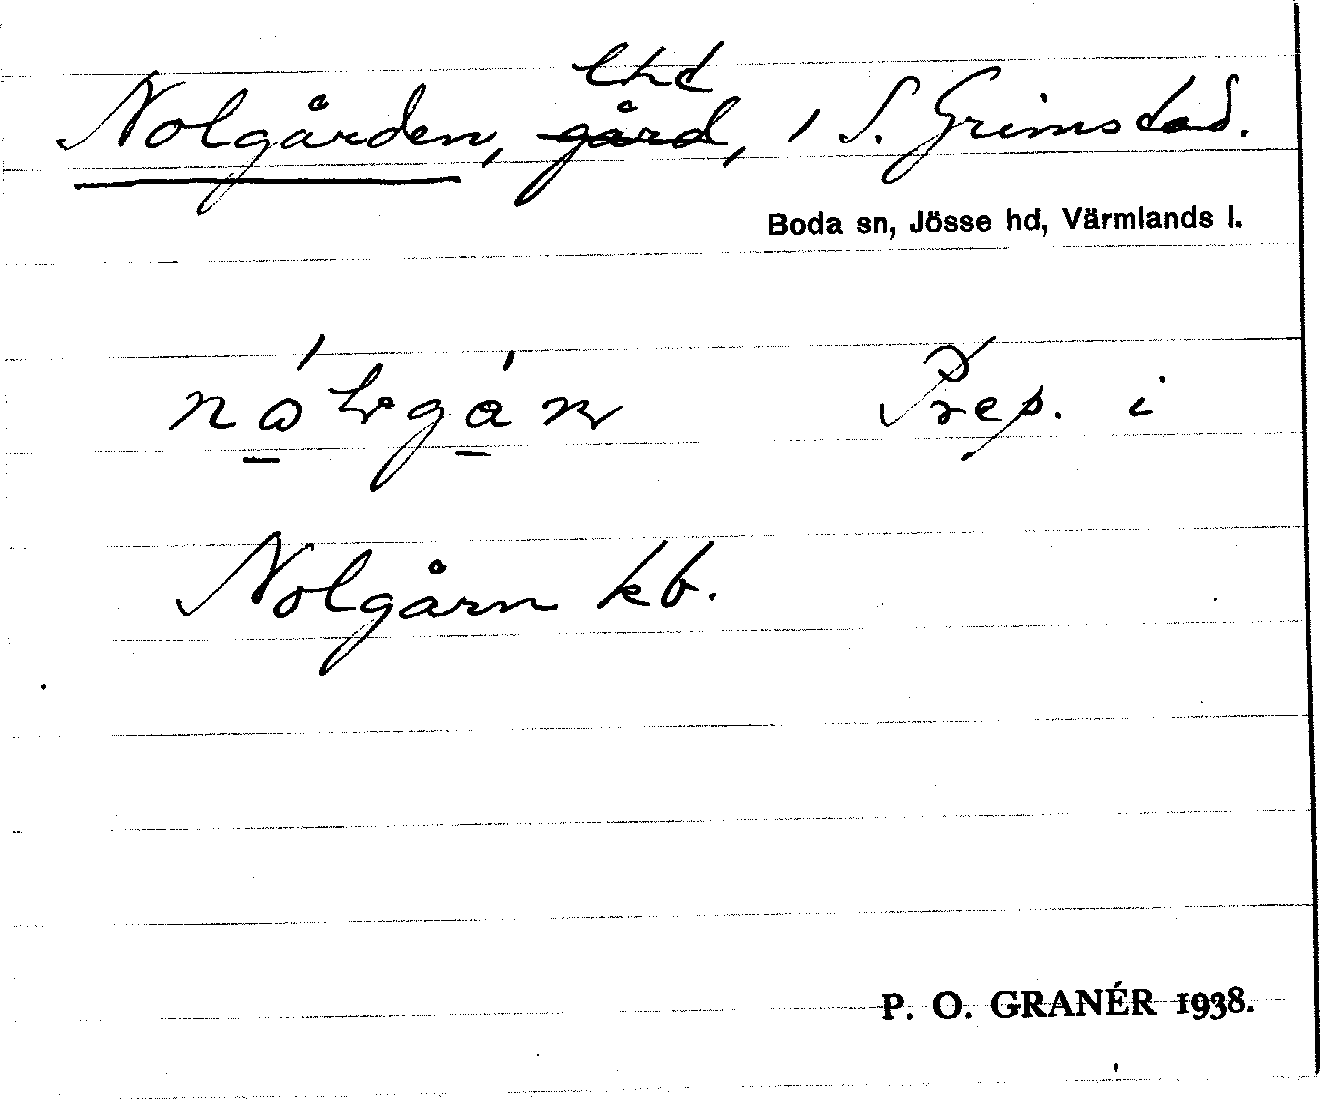 lhd
Nolgården, gård, i S. Grimstad.
Boda sn, Jösse hd, Värmlands l.
Prep. i
Nolgårn kb.
P. O. GRANÉR 1938.